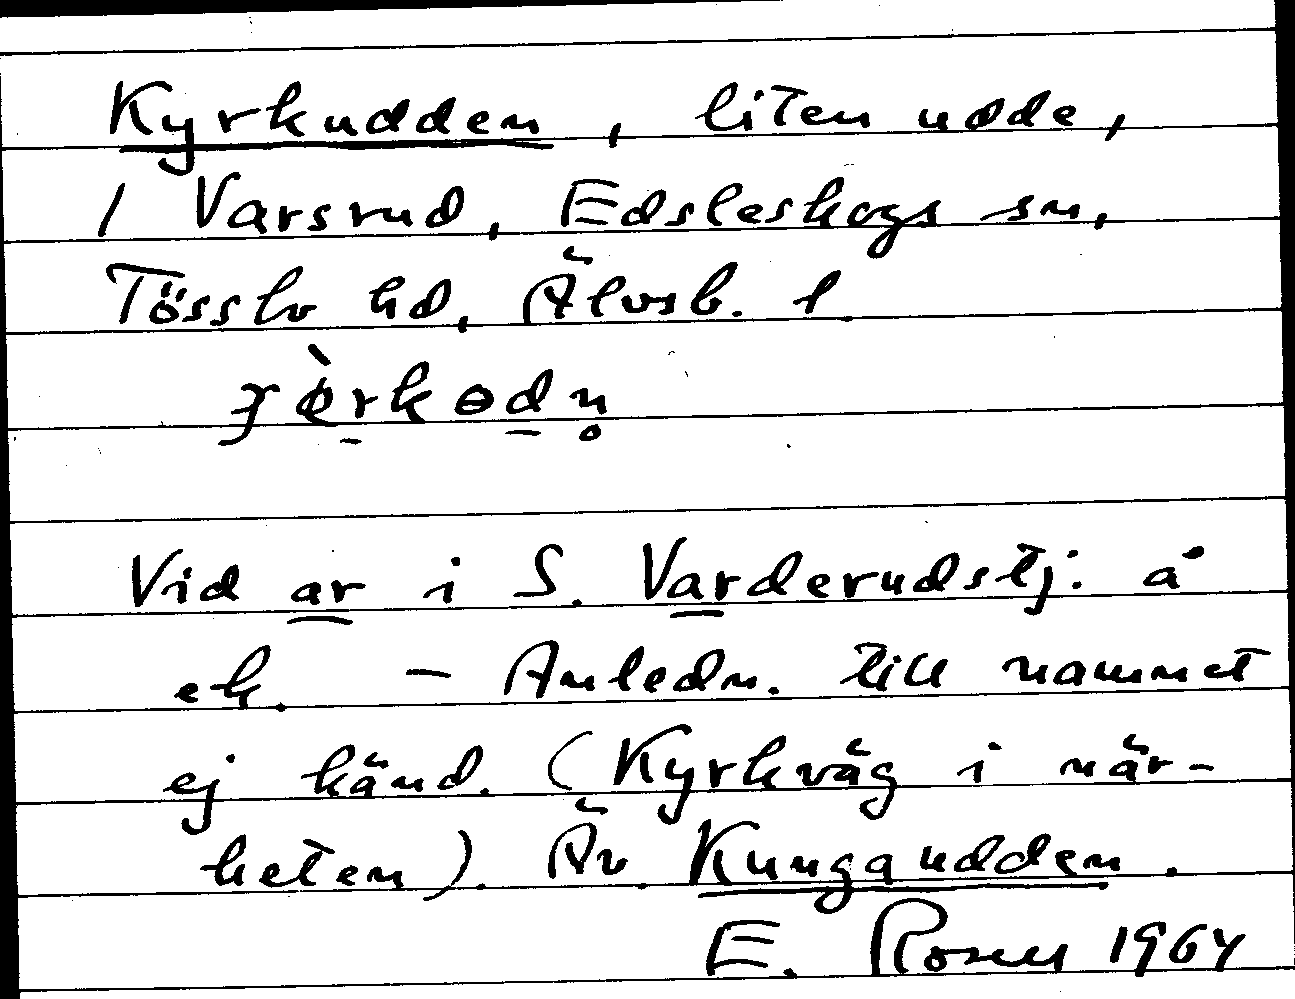 Kyrkudden, liten udde,
/ Varsrud, Edsleskogs sn,
Tössbo hd, Älvsb. l.
Vid ar i S. Varderudstj. å
ek. – Anledn. till namnet
ej känd. (Kyrkväg i när-
heten). Äv. Kungaudden.
E. Rosell 1964